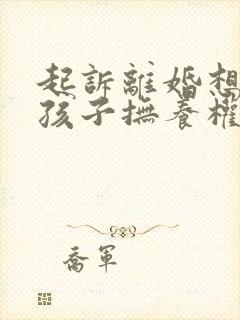 起訴離婚想
孩子撫養權
喬軍